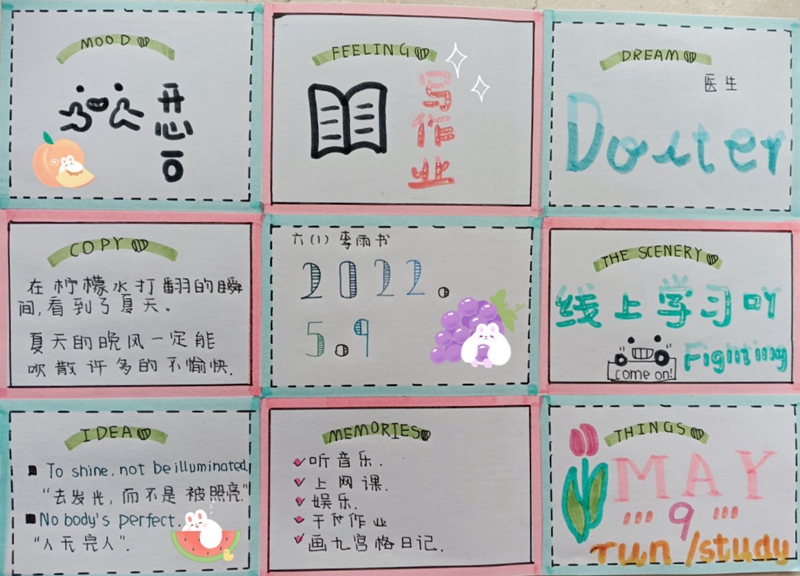 MOOD
开
心
FEELING
写
作
业
DREAM
医生
Docter
COPY
在柠檬水打翻的瞬
间,看到了夏天。
夏天的晚风一定能
吹散许多的不愉快.
六(1) 李雨书
2022.
5.9
THE SCENERY
线上学习吖
come on!
Fighting
IDEA
To shine, not be illuminated
"去发光,而不是被照亮"
No body's perfect.
"人无完人".
MEMORIES
听音乐.
上网课.
娱乐.
作业
画九宫格日记.
THINGS
MAY
9
run /study